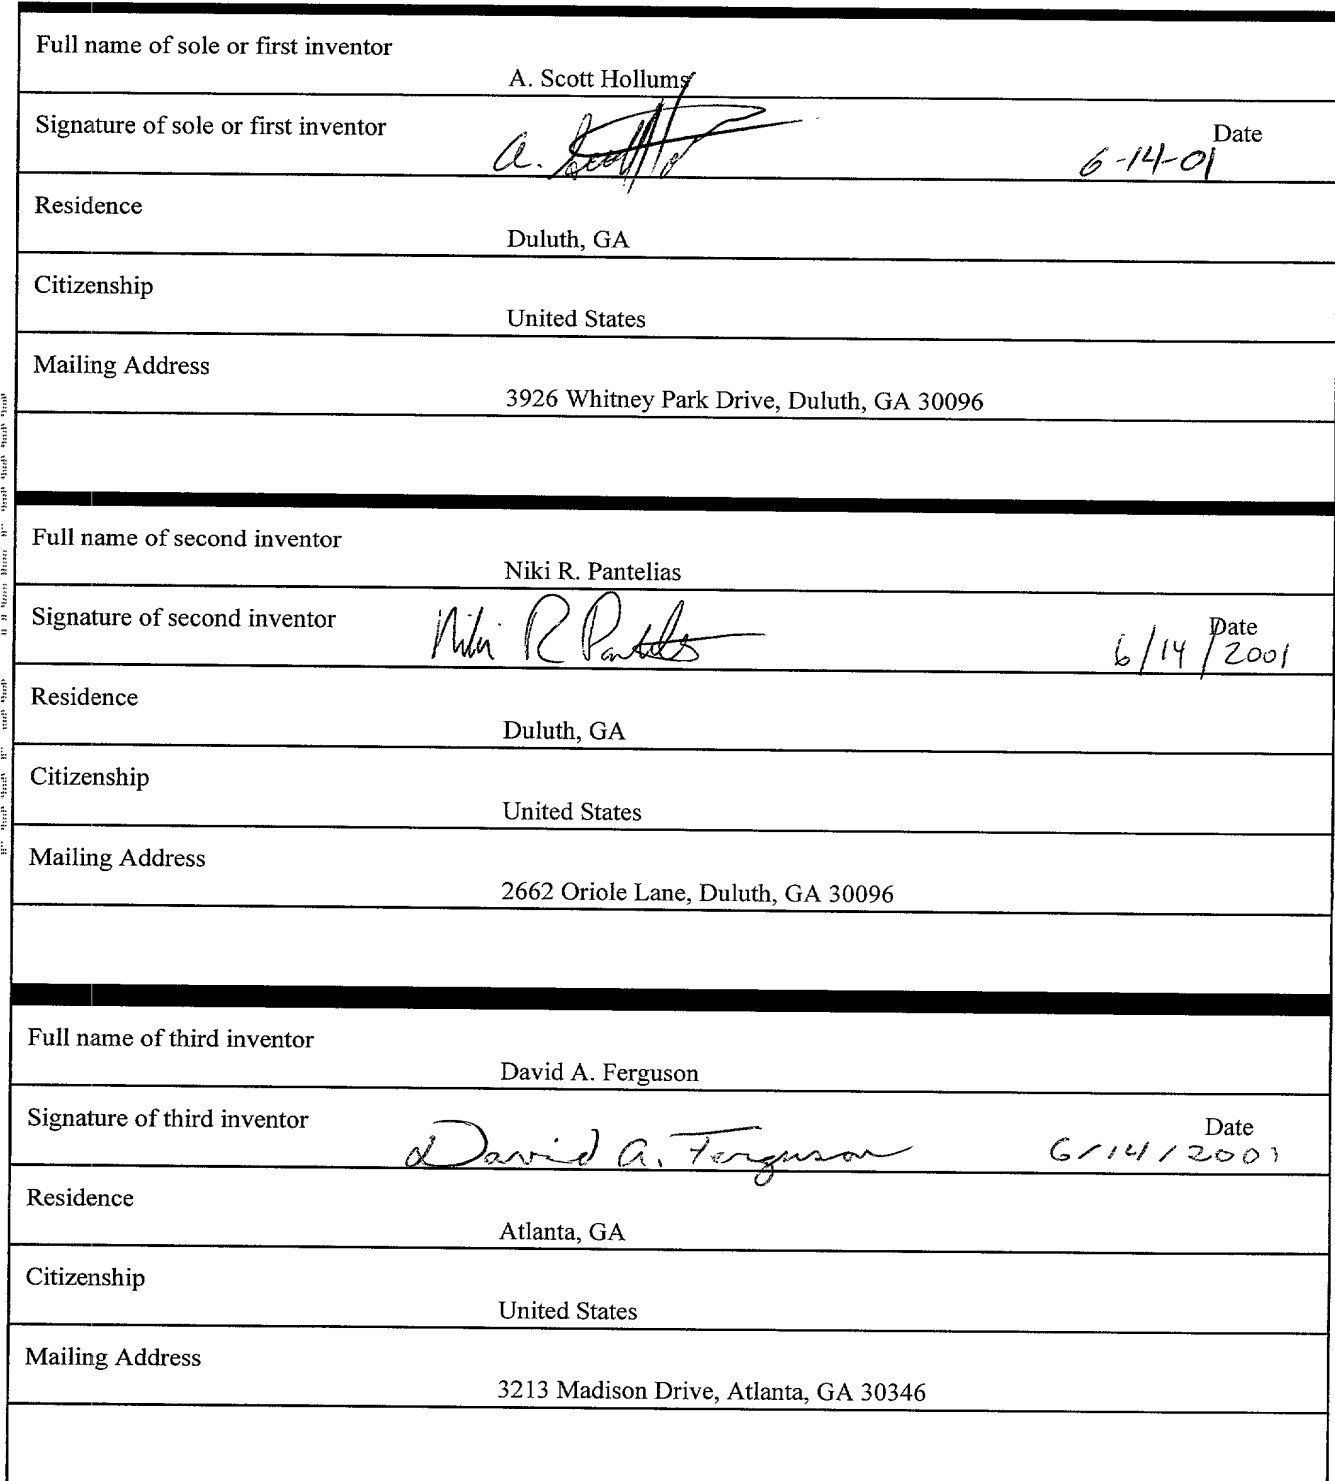 Full name of sole or first inventor
A. Scott Hollums
Signature of sole or first inventor
Date
A. Scott
6-14-01
Residence
Duluth, GA
Citizenship
United States
Mailing Address
3926 Whitney Park Drive, Duluth, GA 30096
Full name of second inventor
Niki R. Pantelias
Signature of second inventor
Date
Niki R Pantelias
6/14/2001
Residence
Duluth, GA
Citizenship
United States
Mailing Address
2662 Oriole Lane, Duluth, GA 30096
Full name of third inventor
David A. Ferguson
Signature of third inventor
Date
David A. Ferguson
6/14/2001
Residence
Atlanta, GA
Citizenship
United States
Mailing Address
3213 Madison Drive, Atlanta, GA 30346